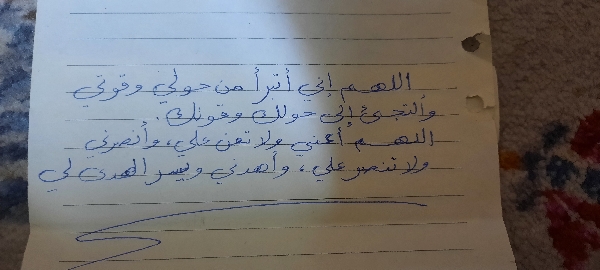 اللهم إني أتبرأ من حولي وقوتي
وألتجئ إلى حولك وقوتك.
اللهم أعني ولا تعن علي، وأنصرني
ولا تنصر علي، وأهدني ويسر الهدى لي